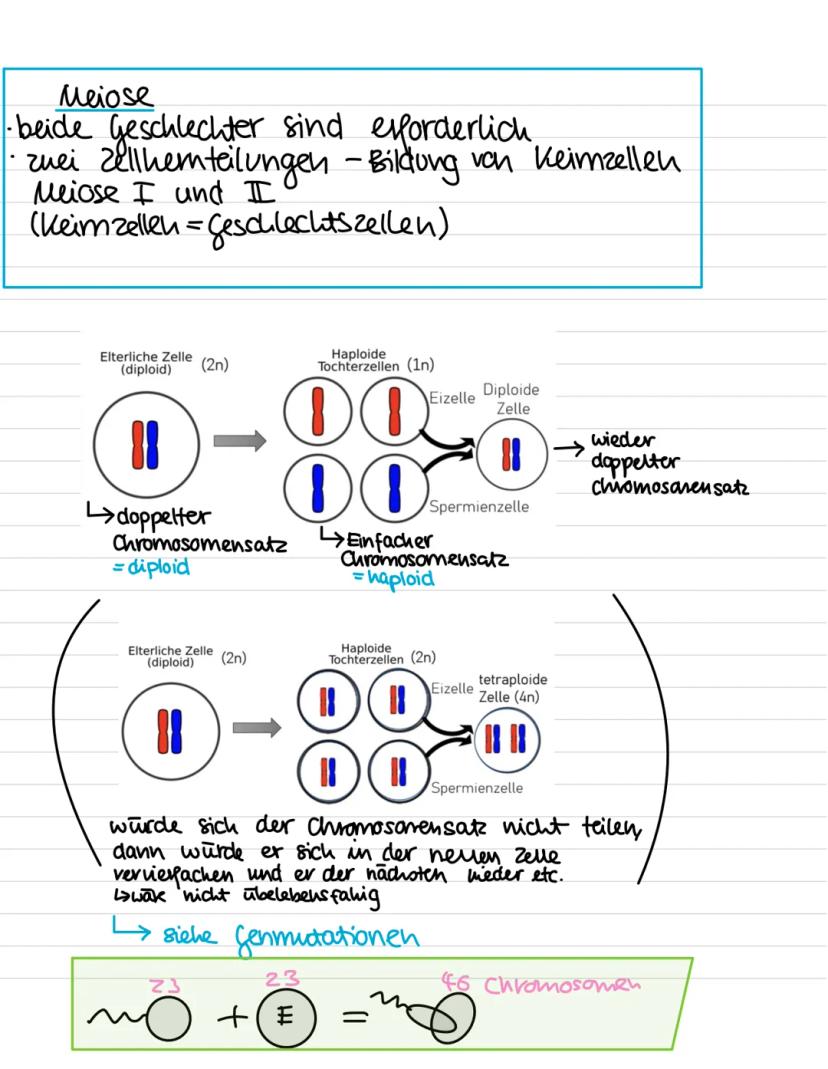 Meiose
· beide Geschlechter sind erforderlich
· zwei Zellkernteilungen – Bildung von Keimzellen
Meiose I und II
(Keimzellen = Geschlechtszellen)
Elterliche Zelle (2n)
(diploid)
Haploide
Tochterzellen (1n)
Eizelle
Diploide
Zelle
Spermienzelle
→ wieder
doppelter
Chromosomensatz
↳ doppelter
Chromosomensatz
= diploid
↳ Einfacher
Chromosomensatz
= haploid
Elterliche Zelle (2n)
(diploid)
Haploide
Tochterzellen (2n)
Eizelle
tetraploide
Zelle (4n)
Spermienzelle
würde sich der Chromosomensatz nicht teilen,
dann würde er sich in der neuen Zelle
vervierfachen und in der nächsten wieder etc.
↳ wäre nicht übelebensfähig
↳ siehe Genmutationen
23
23
46 Chromosomen
+ E =